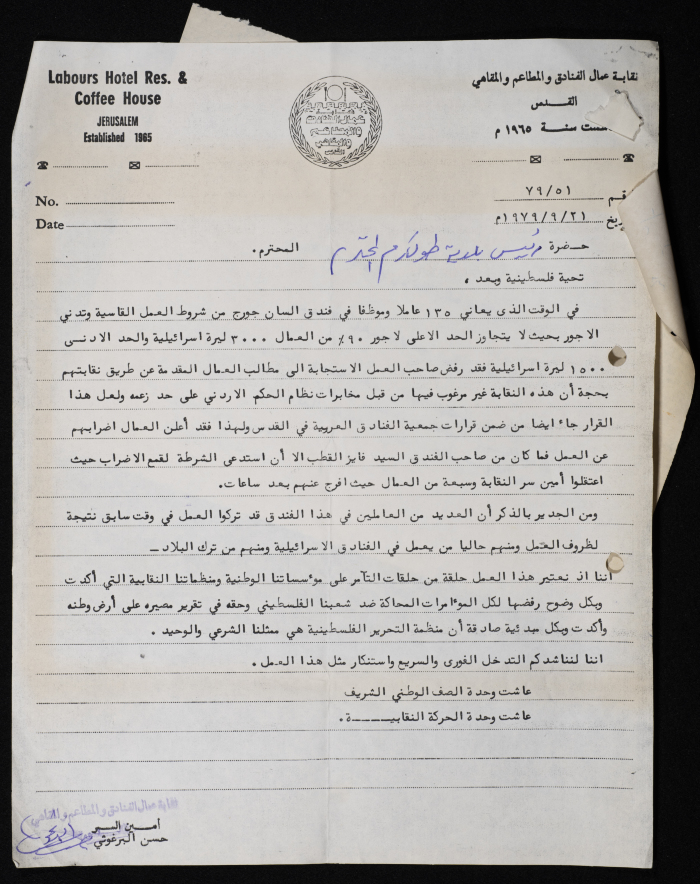 Labours Hotel Res. &
Coffee House
JERUSALEM
Established 1965
نقابة عمال الفنادق والمطاعم والمقاهي
القدس
ست سنة ١٩٦٥ م
نقابة
عمال الفنادق
والمطاعم
والمقاهي
القدس
No.
Date
قم ٧٩/٥١
يخ ١٩٧٩/٩/٢١م
حضرة رئيس بلدية طولكرم المحترم المحترم.
تحية فلسطينية وبعد ،
في الوقت الذى يعاني ١٣٥ عاملا وموظفا في فندق السان جورج من شروط العمل القاسية وتدني
الاجور بحيث لا يتجاوز الحد الاعلى لاجور ٩٠٪ من العمال ٣٠٠٠ ليرة اسرائيلية والحد الادنى
١٥٠٠ ليرة اسرائيلية فقد رفض صاحب العمل الاستجابة الى مطالب العمال المقدمة عن طريق نقابتهم
بحجة أن هذه النقابة غير مرغوب فيها من قبل مخابرات نظام الحكم الاردني على حد زعمه ولعل هذا
القرار جاء ايضا من ضمن قرارات جمعية الفنادق العربية في القدس ولهذا فقد أعلن العمال اضرابهم
عن العمل فما كان من صاحب الفندق السيد فايز القطب الا أن استدعى الشرطة لقمع الاضراب حيث
اعتقلوا أمين سر النقابة وسبعة من العمال حيث افرج عنهم بعد ساعات.
ومن الجدير بالذكر أن العديد من العاملين في هذا الفندق قد تركوا العمل في وقت سابق نتيجة
لظروف العمل ومنهم حاليا من يعمل في الفنادق الاسرائيلية ومنهم من ترك البلاد ــ
أننا اذ نعتبر هذا العمل حلقة من حلقات التآمر على مؤسساتنا الوطنية ومنظماتنا النقابية التي أكدت
وبكل وضوح رفضها لكل المؤامرات المحاكة ضد شعبنا الفلسطيني وحقه في تقرير مصيره على أرض وطنه
وأكدت وبكل مبدئية صادقة أن منظمة التحرير الفلسطينية هي ممثلنا الشرعي والوحيد .
اننا لنناشدكم التدخل الفورى والسريع واستنكار مثل هذا العمل.
عاشت وحدة الصف الوطني الشريف
عاشت وحدة الحركة النقابيـــــة.
نقابة عمال الفنادق والمطاعم والمقاهي
أمين السر
حسن البرغوثي